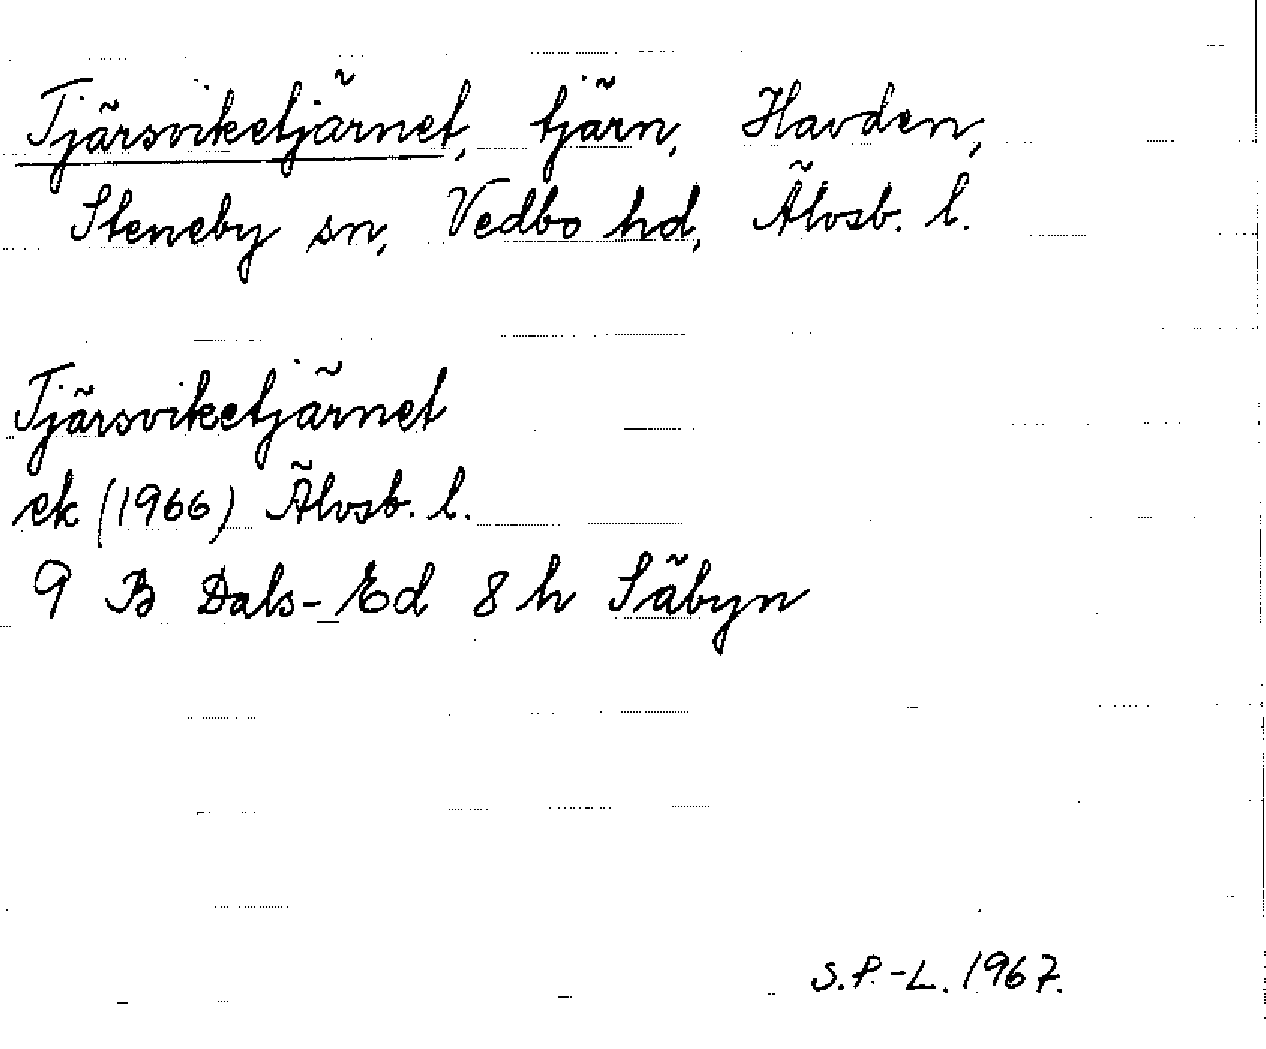 Tjärsviketjärnet, tjärn, Havden,
Steneby sn, Vedbo hd, Älvsb. l.
Tjärsviketjärnet
ek (1966) Älvsb. l.
9 B Dals-Ed 8 h Säbyn
S.P.-L. 1967.